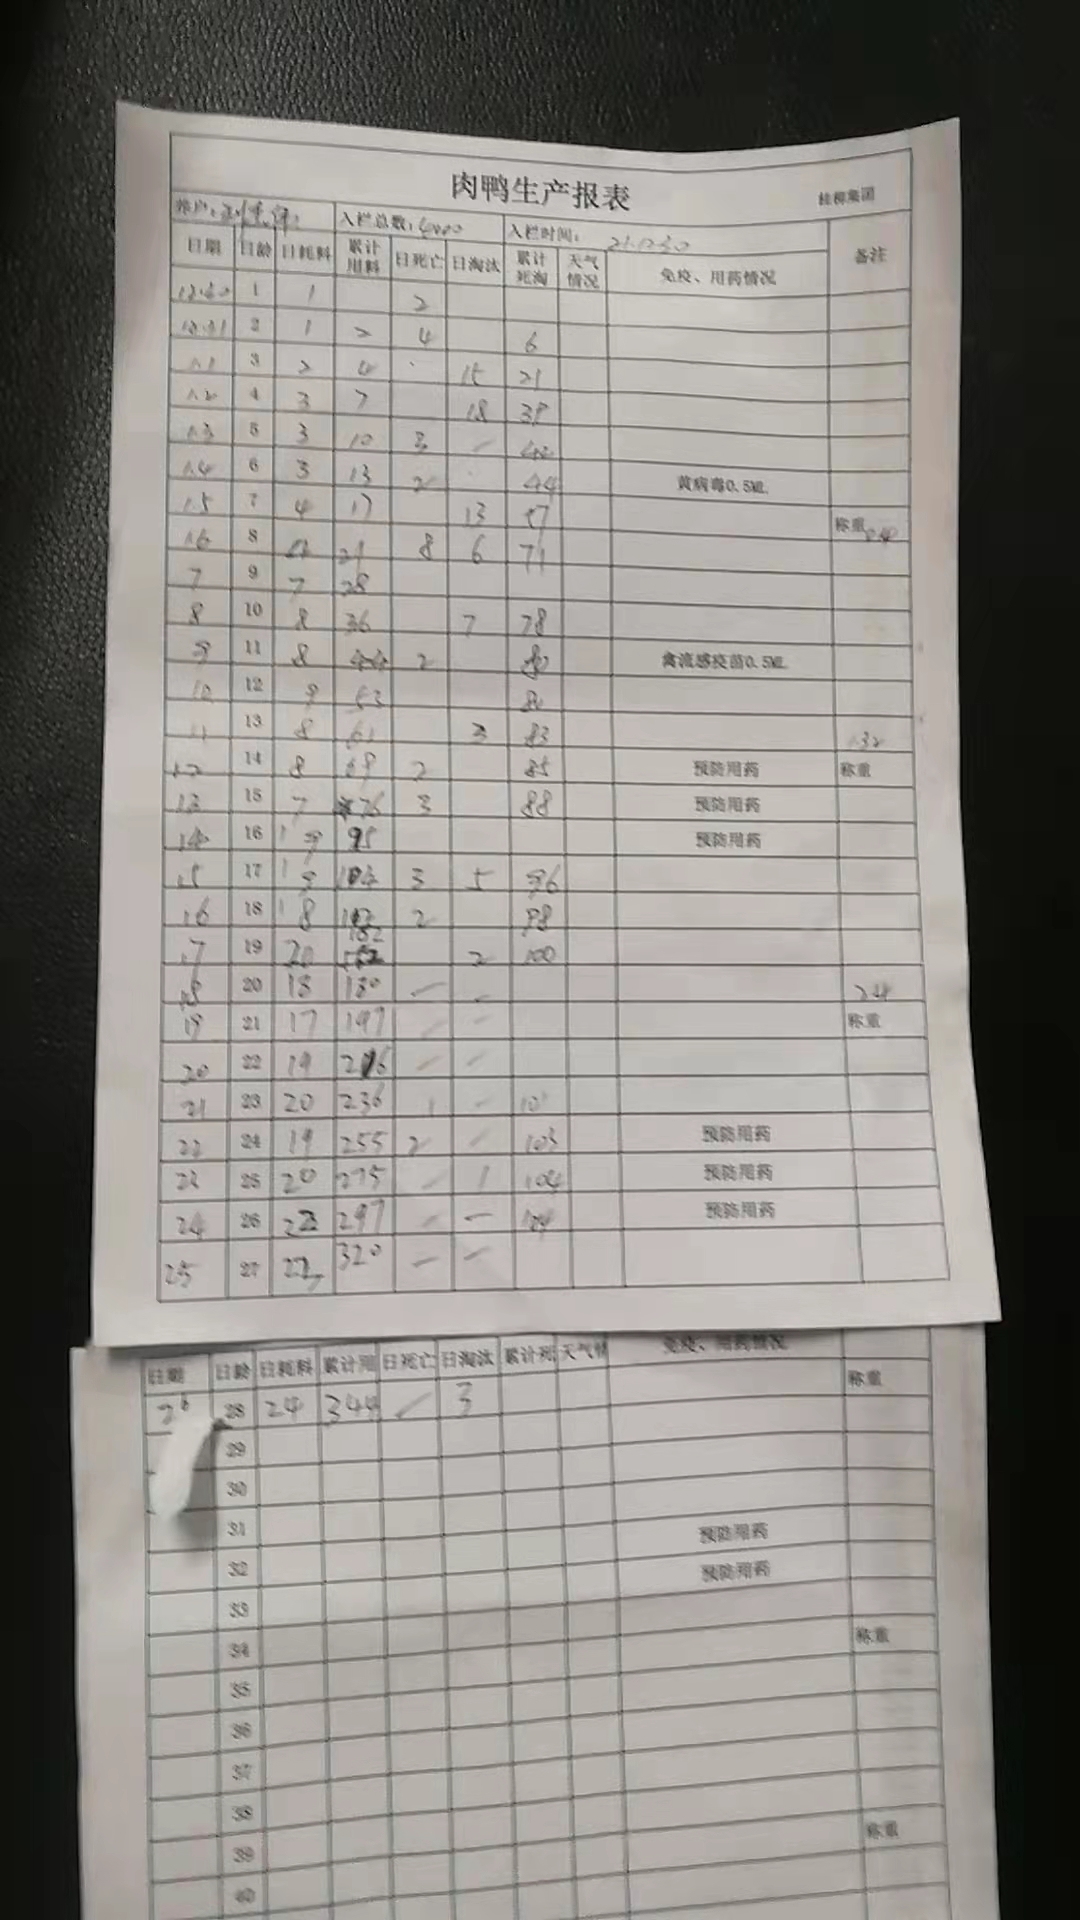 肉鸭生产报表 桂柳集团
养户: 入栏总数: 入栏时间: 21.12.30 备注
日期 日龄 日耗料 累计用料 日死亡 日淘汰 累计死淘 天气情况 免疫、用药情况
12.30 1 1 2
12.31 2 1 2 4 6
1.1 3 2 4 15 21
1.2 4 3 7 18 39
1.3 5 3 10 3 — 42
1.4 6 3 13 2 44 黄病毒0.5ML
1.5 7 4 17 13 57 称重
1.6 8 4 21 8 6 71
7 9 7 28
8 10 8 36 7 78
9 11 8 44 2 80 禽流感疫苗0.5ML
10 12 9 53 80
11 13 8 61 3 83 1.32
12 14 8 69 2 85 预防用药 称重
13 15 7 76 3 88 预防用药
14 16 19 95 预防用药
15 17 19 3 5 96
16 18 18 2 98
17 19 20 2 100
18 20 18 180 — —
19 21 17 197 — — 称重
20 22 19 216 — —
21 23 20 236 1 — 101
22 24 19 255 2 — 103 预防用药
23 25 20 275 — 1 104 预防用药
24 26 22 297 — — 104 预防用药
25 27 320 — —
日期 日龄 日耗料 累计用 日死亡 日淘汰 累计死 天气情 免疫、用药情况
26 28 24 344 — 3 称重
29
30
31 预防用药
32 预防用药
33
34 称重
35
36
37
38
39 称重
40